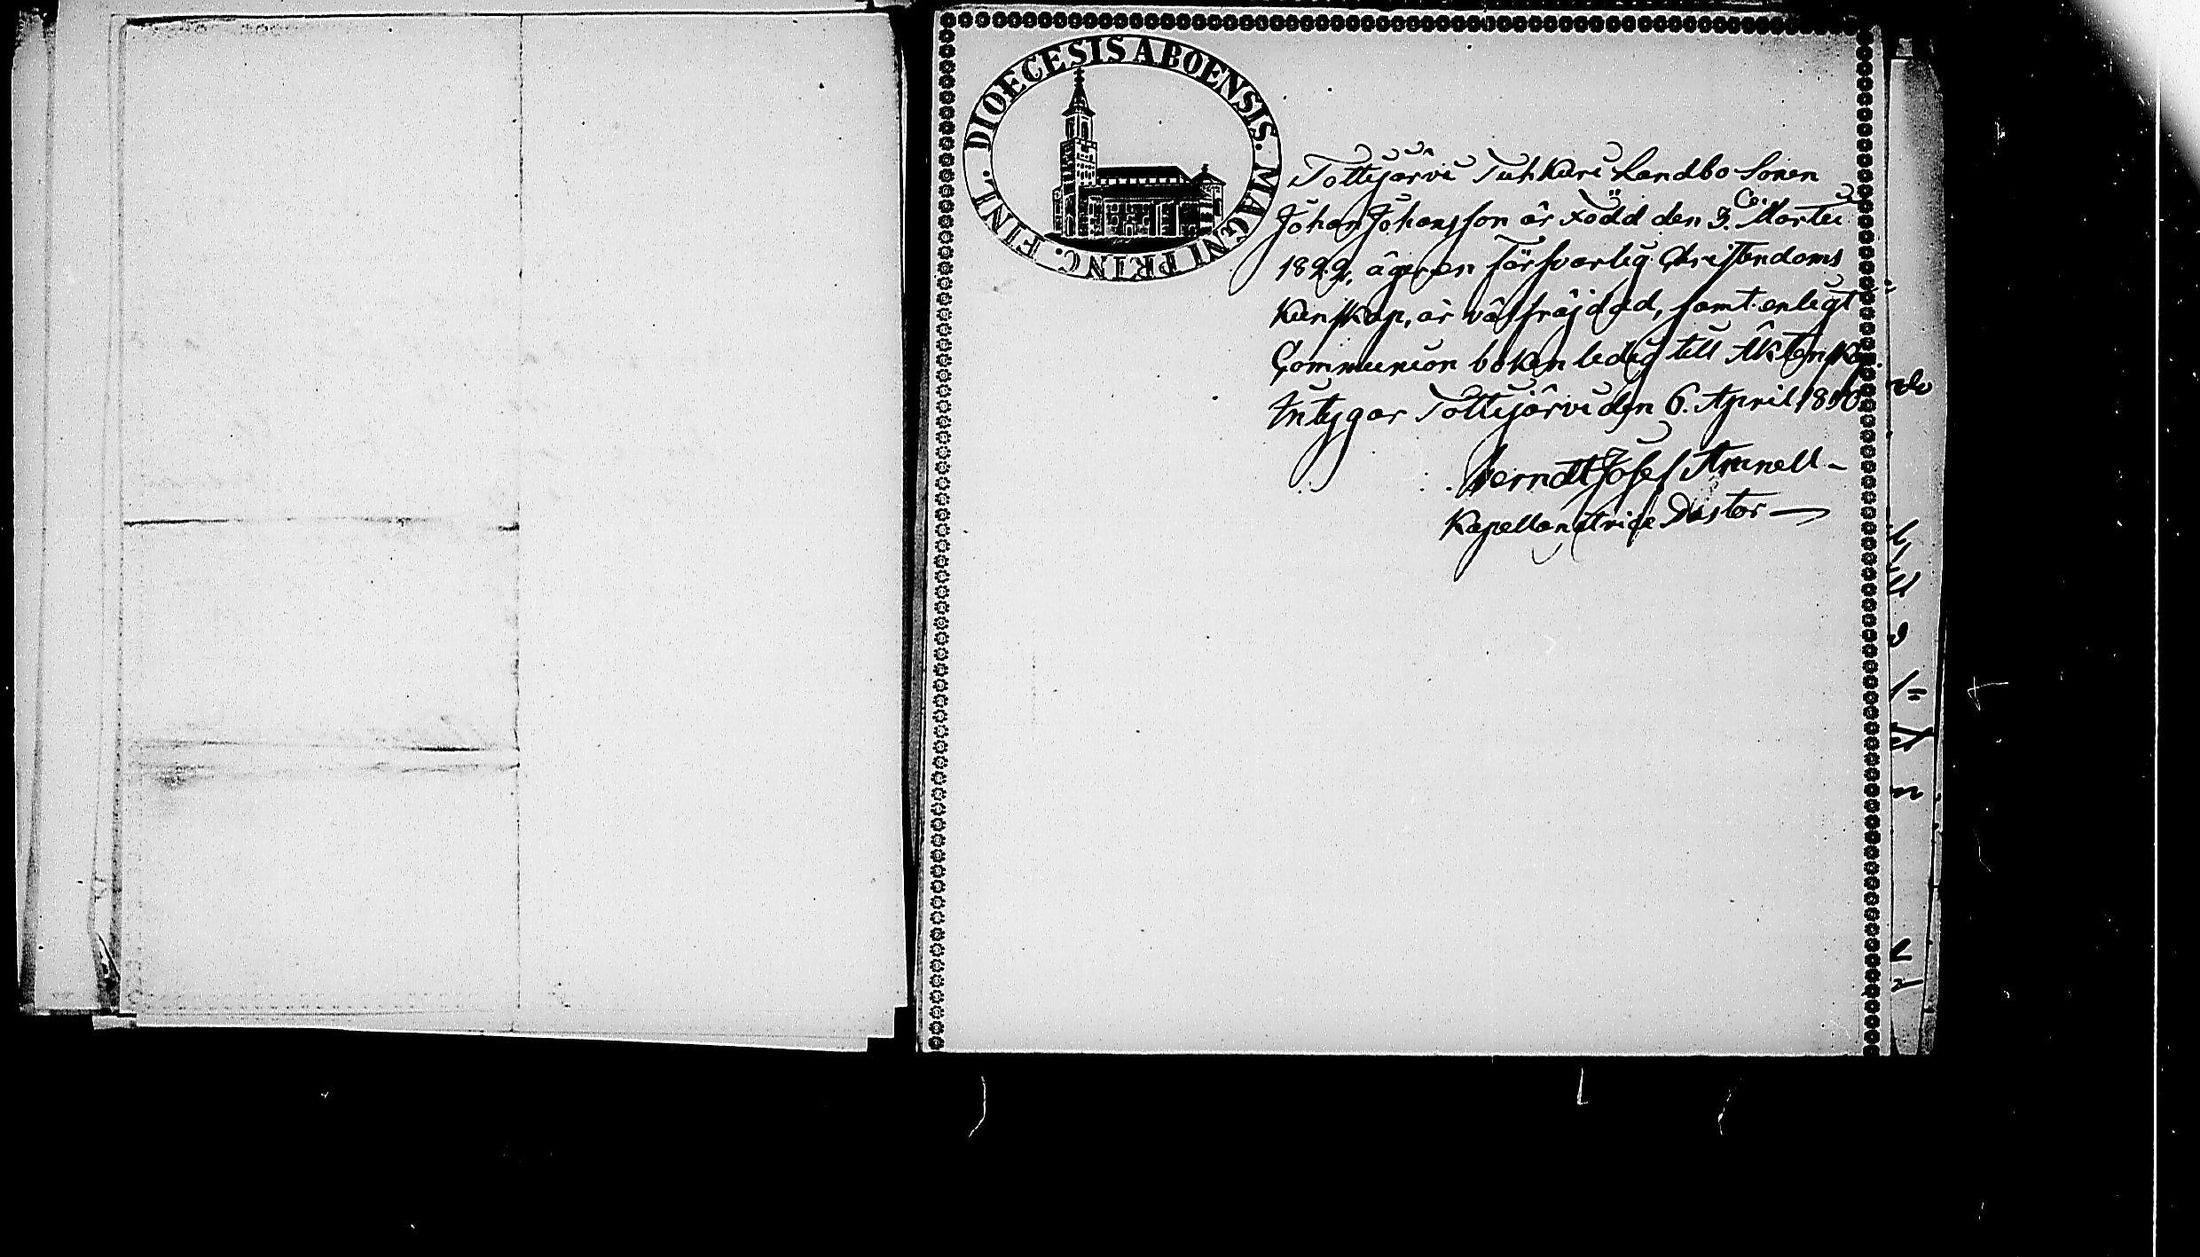 DIOECESIS ABOENSIS. MAGNI PRINC. FINL.
Tottijärvi Tuhkuri Landbo Sonen
Johan Johansson är Född den 3. Martii
1822, äger en Försvarlig Christendoms
Kunskap, är välfräjdad, samt enligt
Communion boken ledig till Äktenskap
Intygar Tottijärvi den 6. April 1850
Berndt Josef Arenell
Kapellan Vice Pastor